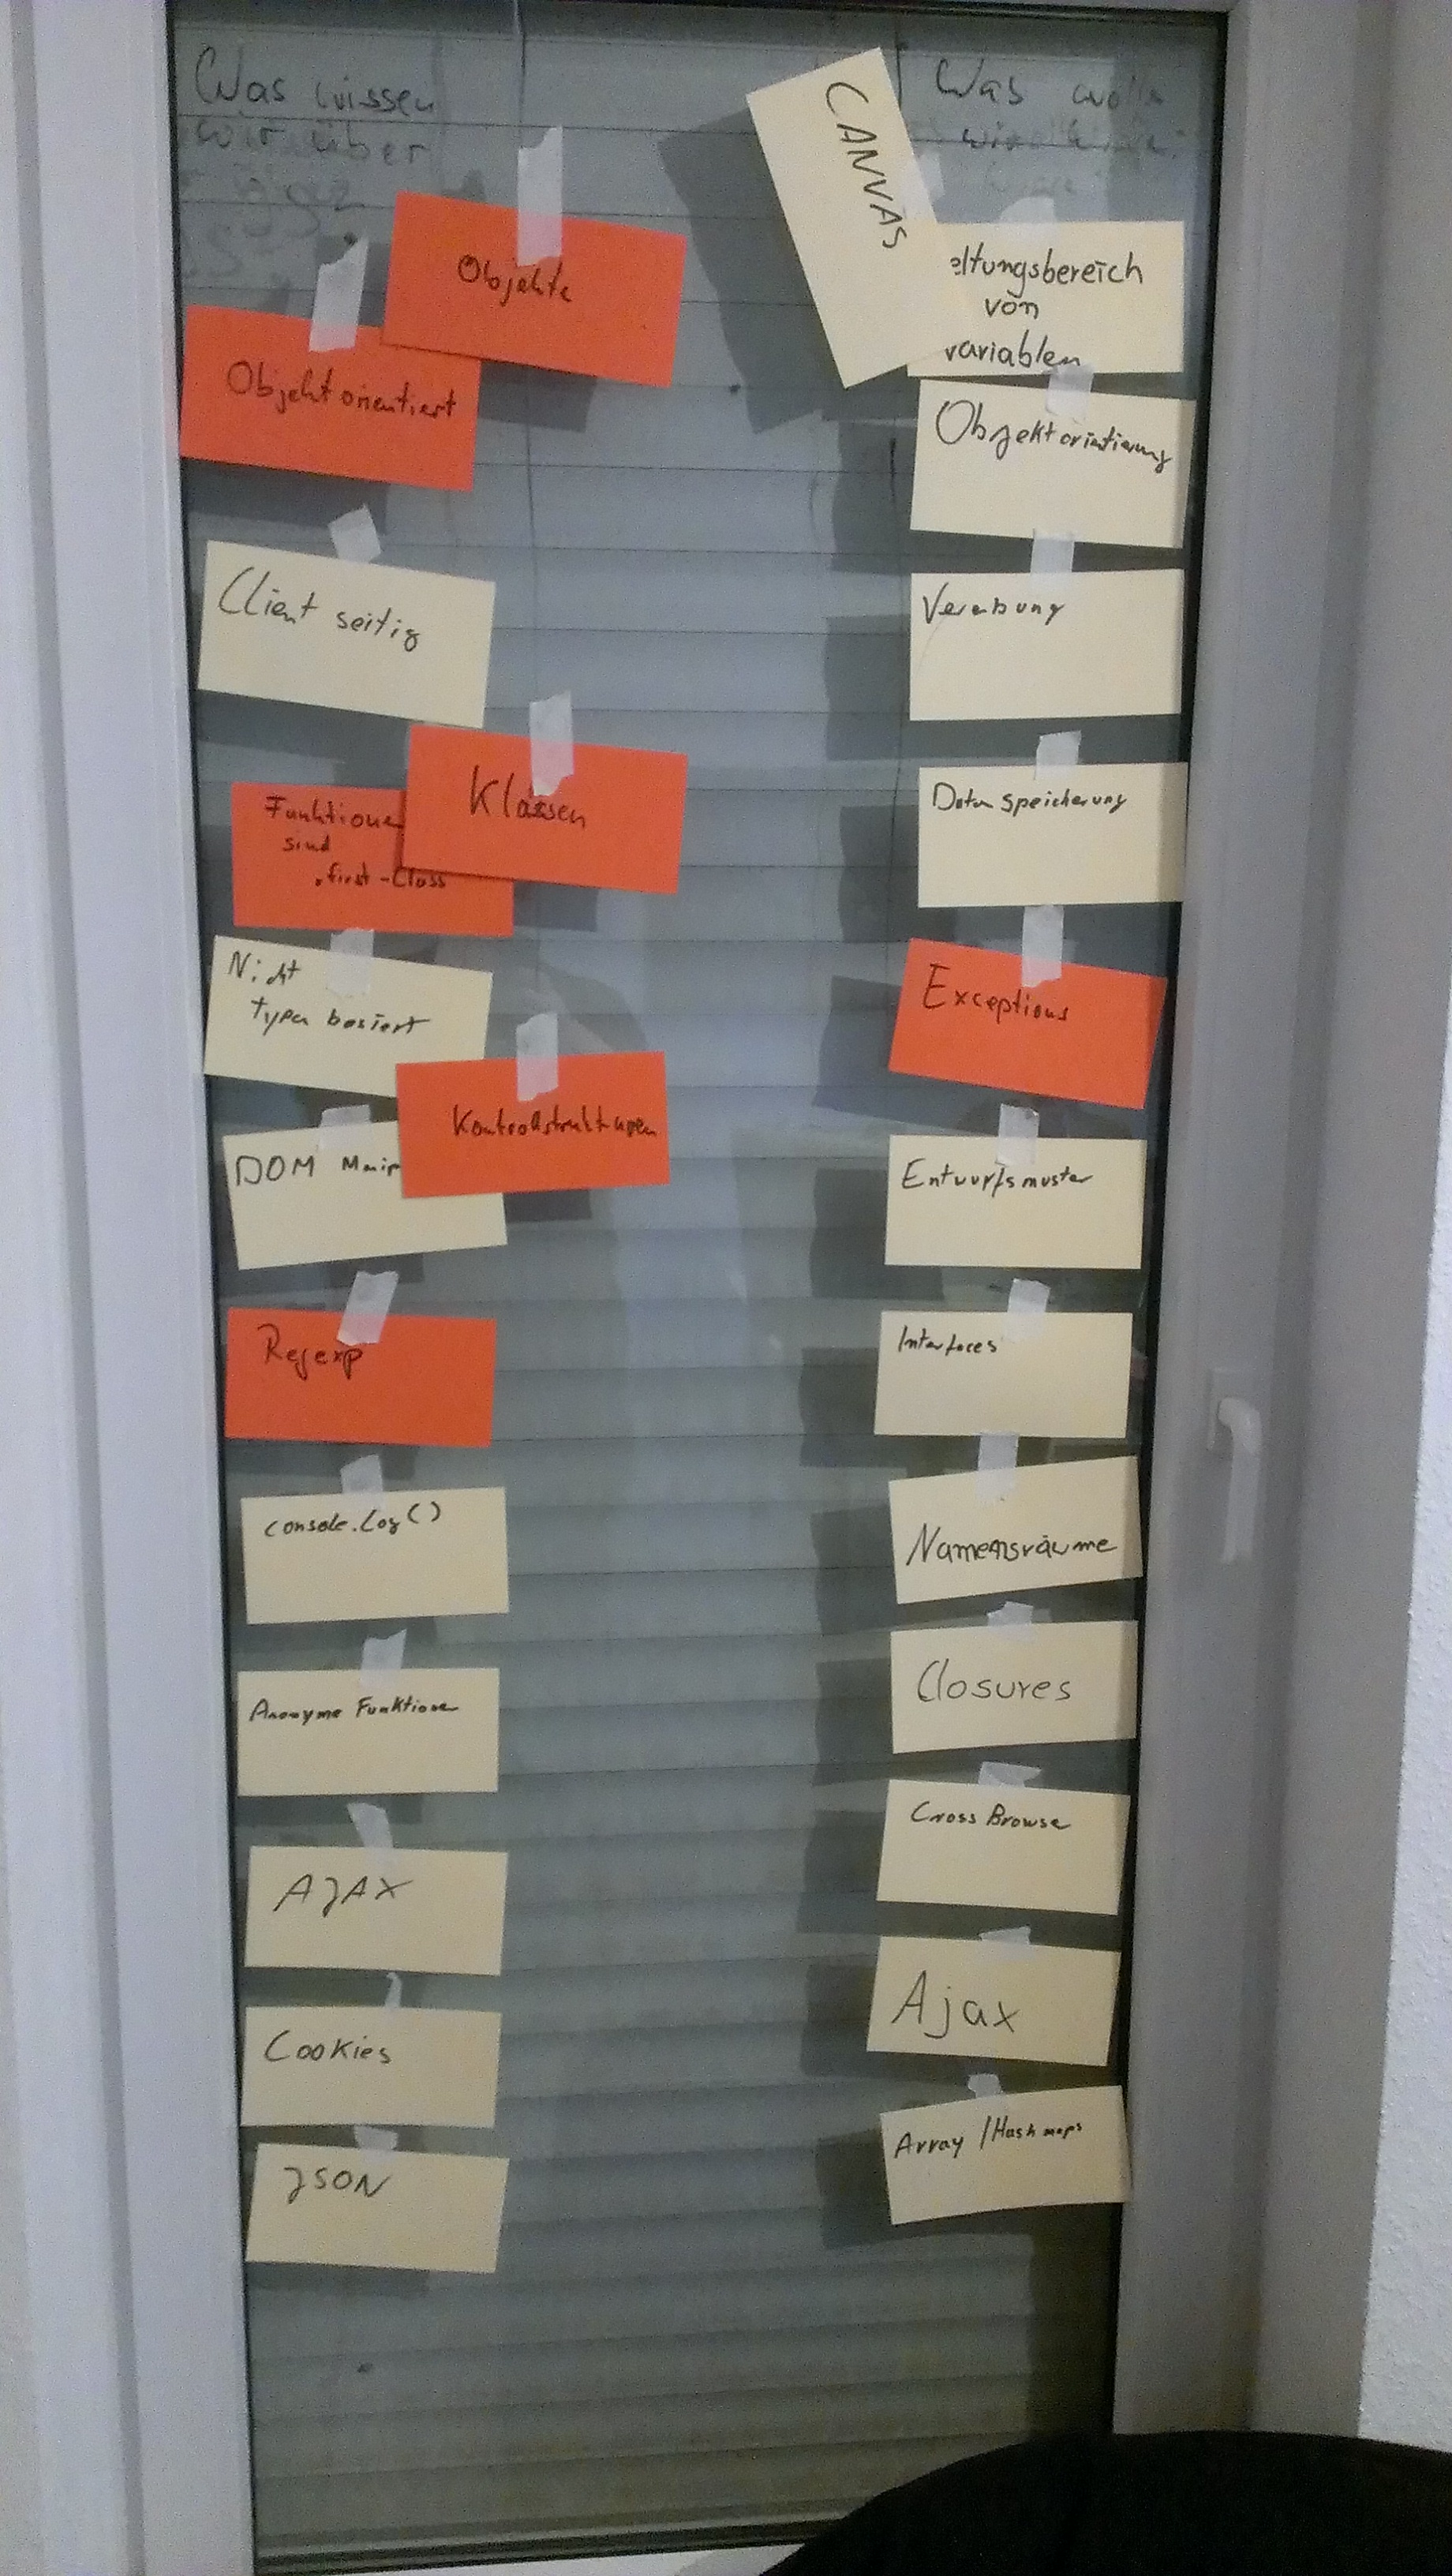 Was wissen
wir über
Objekte
Objektorientiert
Client seitig
Klassen
Funktionen
sind
first-Class
Nicht
typen basiert
Kontrollstrukturen
DOM Manip
Regexp
console.log()
Anonyme Funktionen
AJAX
Cookies
JSON
Was
wir
CANVAS
eltungsbereich
von
variablen
Objektorientierung
Vererbung
Datenspeicherung
Exceptions
Entwurfsmuster
Interfaces
Namensräume
Closures
Cross Browser
Ajax
Array / Hashmaps